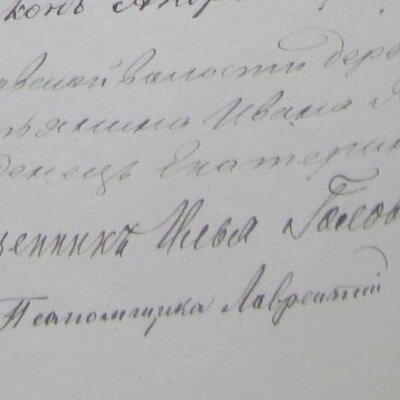 конъ Андр
овской волости дере
тьянина Ивана
денецъ Екатерин
щенникъ Илья Голов
Псаломщика Лаврентий